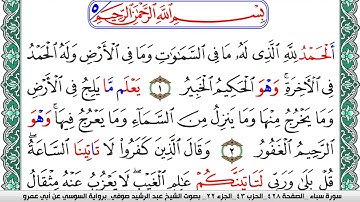 بِسْمِ ٱللَّهِ ٱلرَّحْمَٰنِ ٱلرَّحِيمِ
ٱلْحَمْدُ لِلَّهِ ٱلَّذِى لَهُۥ مَا فِى ٱلسَّمَٰوَٰتِ وَمَا فِى ٱلْأَرْضِ وَلَهُ ٱلْحَمْدُ
فِى ٱلْأَخِرَةِۚ وَهْوَ ٱلْحَكِيمُ ٱلْخَبِيرُ ١ يَعْلَم مَّا يَلِجُ فِى ٱلْأَرْضِ
وَمَا يَخْرُجُ مِنْهَا وَمَا يَنزِلُ مِنَ ٱلسَّمَآءِ وَمَا يَعْرُجُ فِيهَاۚ وَهْوَ
ٱلرَّحِيمُ ٱلْغَفُورُ ٢ وَقَالَ ٱلَّذِينَ كَفَرُوا۟ لَا تَاتِينَا ٱلسَّاعَةُۖ
قُلْ بَلَىٰ وَرَبِّى لَتَاتِيَنَّكُمْ عَٰلِمِ ٱلْغَيْبِۖ لَا يَعْزُبُ عَنْهُ مِثْقَالُ
سورة سباء . الصفحة ٤٢٨ . الحزب ٤٣ . الجزء ٢٢ . بصوت الشيخ عبد الرشيد صوفي . برواية السوسي عن أبي عمرو